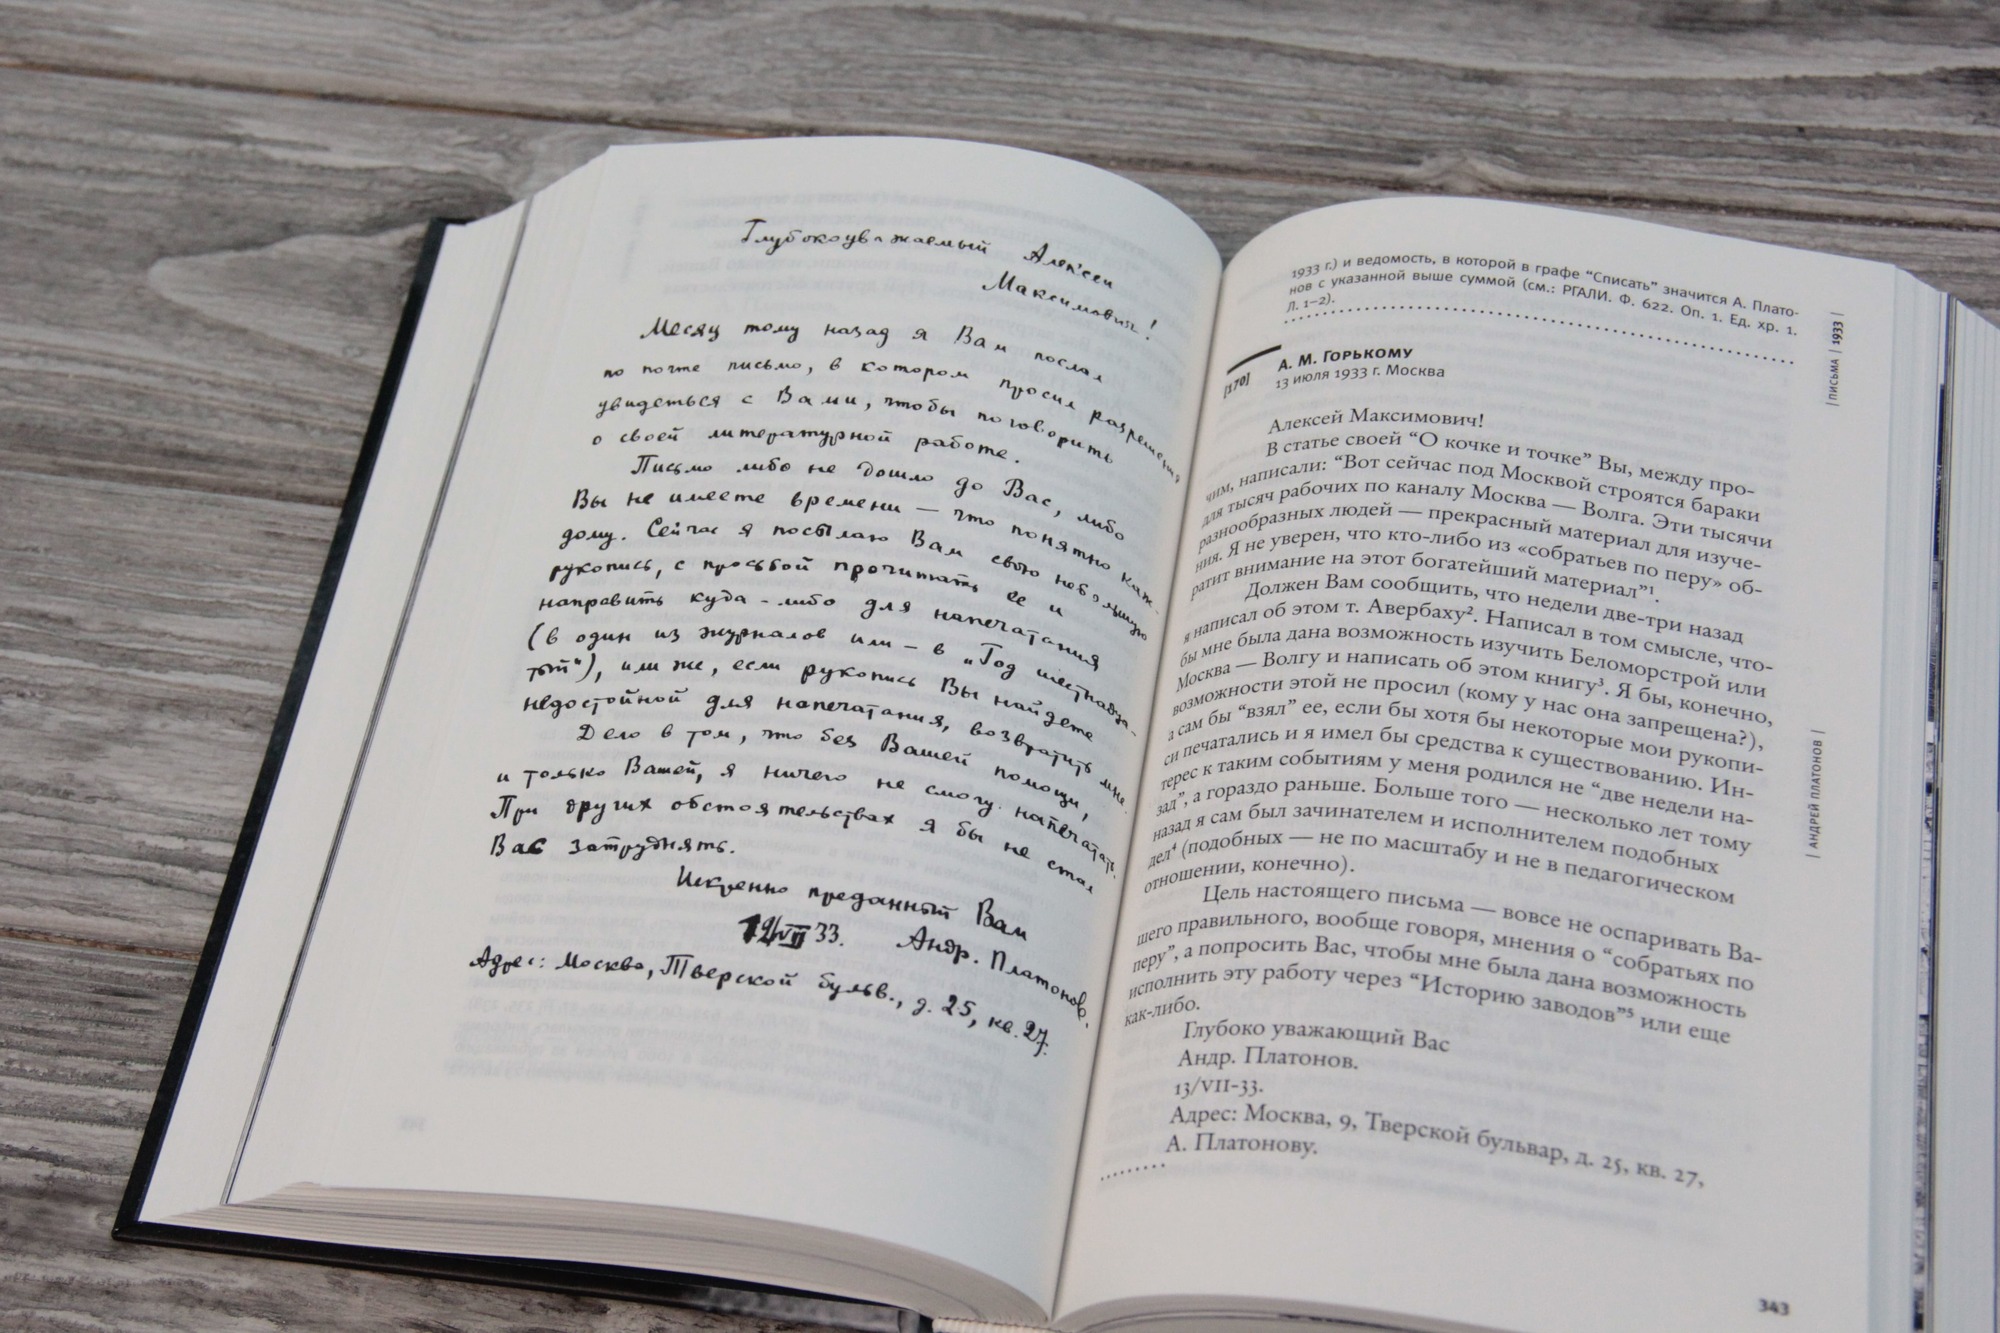 Глубокоуважаемый Алексей
Максимович!
Месяц тому назад я Вам послал
по почте письмо, в котором просил разрешения
увидеться с Вами, чтобы поговорить
о своей литературной работе.
Письмо либо не дошло до Вас, либо
Вы не имеете времени — что понятно каж-
дому. Сейчас я посылаю Вам свою небольшую
рукопись, с просьбой прочитать ее и
направить куда-либо для напечатания
(в один из журналов или — в „Год шестнадца-
тый“), или же, если рукопись Вы найдете
недостойной для напечатания, возвратить мне.
Дело в том, что без Вашей помощи,
и только Вашей, я ничего не смогу напечатать.
При других обстоятельствах я бы не стал
Вас затруднять.
Искренно преданный Вам
33. Андр. Платонов.
Адрес: Москва, Тверской бульв., д. 25, кв. 27.
1933 г.) и ведомость, в которой в графе “Списать” значится А. Плато-
нов с указанной выше суммой (см.: РГАЛИ. Ф. 622. Оп. 1. Ед. хр. 1.
Л. 1–2).
[170]
А. М. ГОРЬКОМУ
13 июля 1933 г. Москва
Алексей Максимович!
В статье своей “О кочке и точке” Вы, между про-
чим, написали: “Вот сейчас под Москвой строятся бараки
для тысяч рабочих по каналу Москва — Волга. Эти тысячи
разнообразных людей — прекрасный материал для изуче-
ния. Я не уверен, что кто-либо из «собратьев по перу» об-
ратит внимание на этот богатейший материал”¹.
Должен Вам сообщить, что недели две-три назад
я написал об этом т. Авербаху². Написал в том смысле, что-
бы мне была дана возможность изучить Беломорстрой или
Москва — Волгу и написать об этом книгу³. Я бы, конечно,
возможности этой не просил (кому у нас она запрещена?),
а сам бы “взял” ее, если бы хотя бы некоторые мои рукопи-
си печатались и я имел бы средства к существованию. Ин-
терес к таким событиям у меня родился не “две недели на-
зад”, а гораздо раньше. Больше того — несколько лет тому
назад я сам был зачинателем и исполнителем подобных
дел⁴ (подобных — не по масштабу и не в педагогическом
отношении, конечно).
Цель настоящего письма — вовсе не оспаривать Ва-
шего правильного, вообще говоря, мнения о “собратьях по
перу”, а попросить Вас, чтобы мне была дана возможность
исполнить эту работу через “Историю заводов”⁵ или еще
как-либо.
Глубоко уважающий Вас
Андр. Платонов.
13/VII-33.
Адрес: Москва, 9, Тверской бульвар, д. 25, кв. 27,
А. Платонову.
| ПИСЬМА | 1933 |
| АНДРЕЙ ПЛАТОНОВ |
343